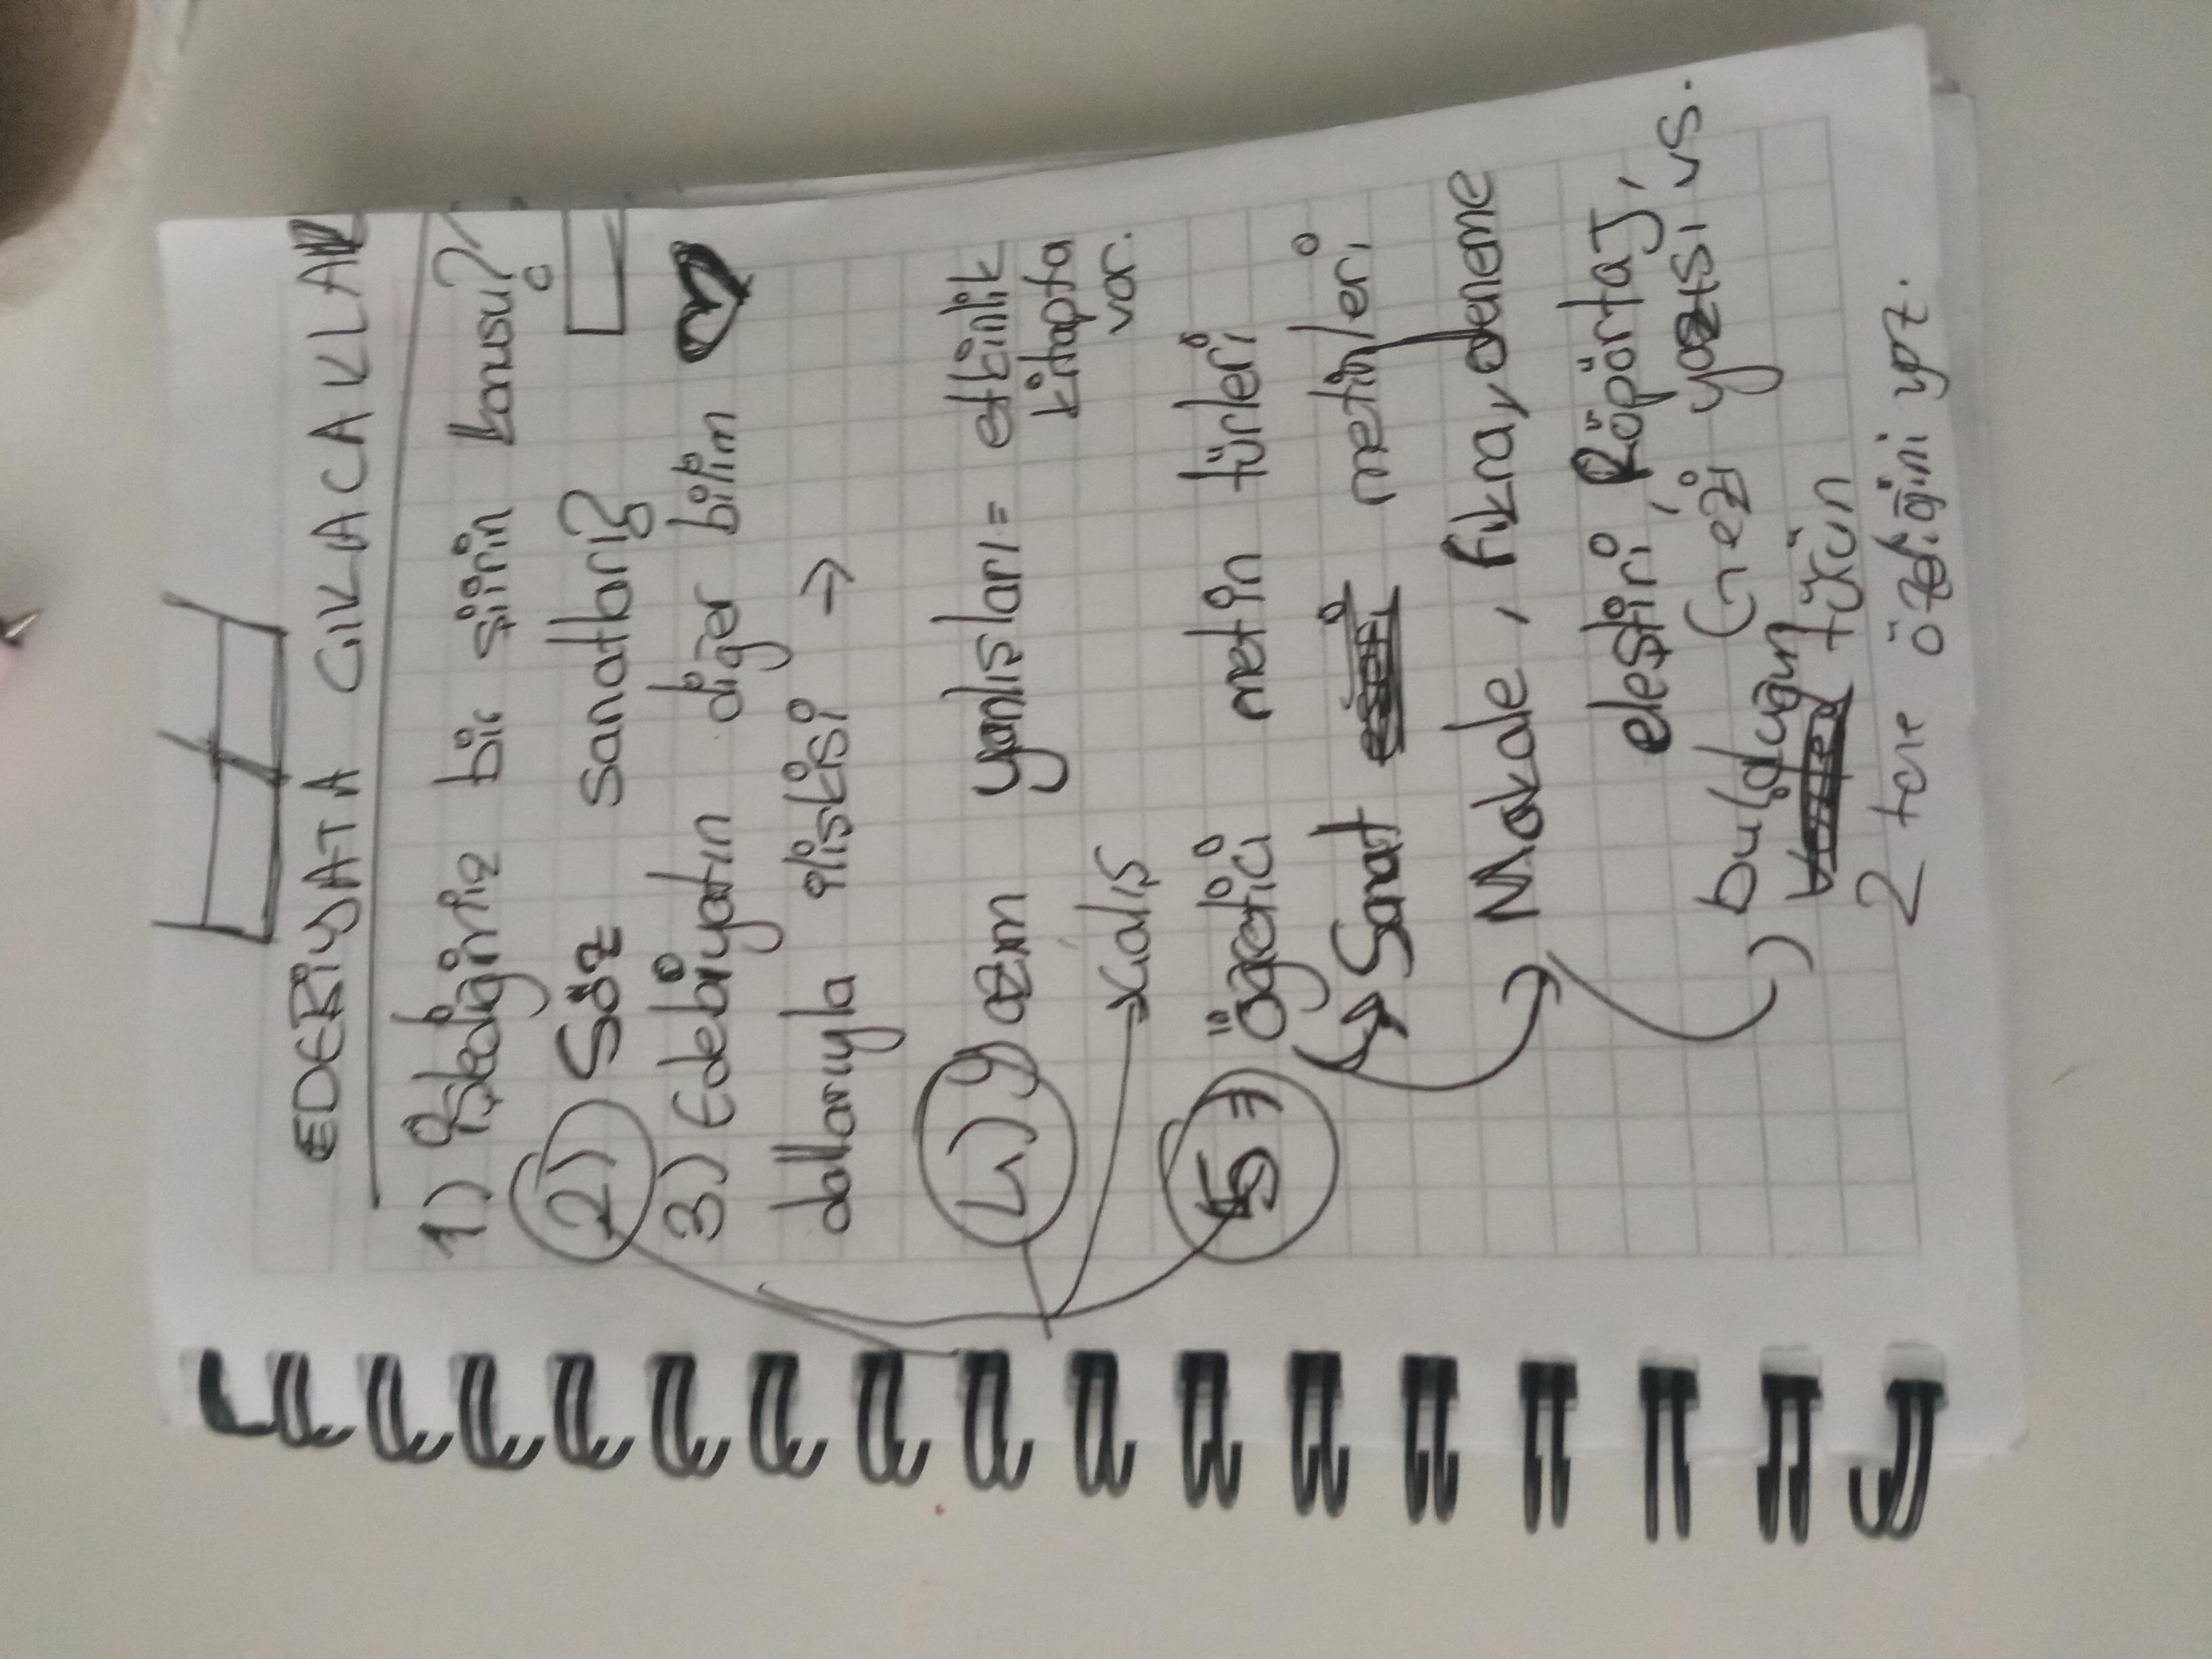 EDEBİYATA ÇIKACAKLAR
1) İşlediğimiz bir şiirin konusu?
2) Söz sanatları?
3) Edebiyatın diğer bilim
dallarıyla ilişkisi →
4) yazım yanlışları = etkinlik
kitapta
var.
çalış
5) öğretici metin türleri
Sanat metinleri
Makale, fıkra, deneme
eleştiri, Röportaj,
(gezi yazısı, vs.
) bulduğun türün
2 tane özelliğini yaz.